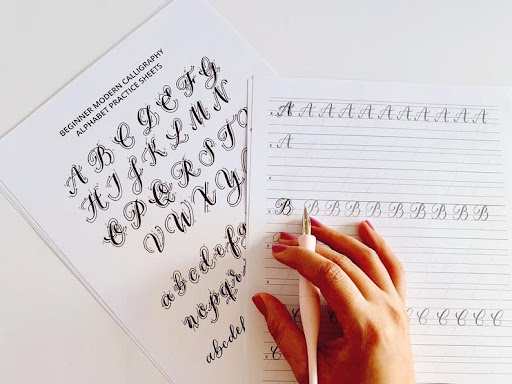 BEGINNER MODERN CALLIGRAPHY
ALPHABET PRACTICE SHEETS
A B C D E F G
H I J K L M N
O P Q R S T
V W X Y
a b c d e f g
n o p q r
a b c d e f
A A A A A A A A A A A
A
B B B B B B B B B B
C C C C C